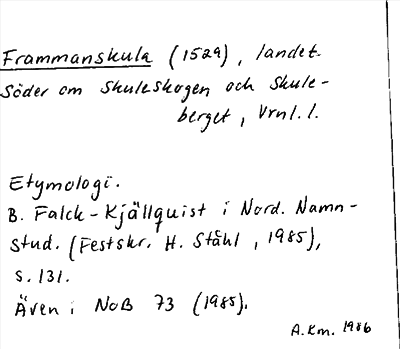 Frammanskula (1529), landet
söder om Skuleskogen och Skule-
berget, Vrml. l.
Etymologi.
B. Falck-Kjällquist i Nord. Namn-
stud. (Festskr. H. Ståhl, 1985),
s. 131.
Även i NoB 73 (1985).
A.Km. 1986